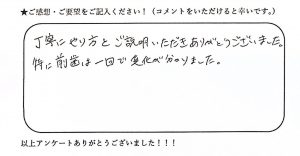 ★ご感想・ご要望をご記入ください！（コメントをいただけると幸いです。）
丁寧にやり方とご説明いただきありがとうございました。
特に前歯は一回で変化が分かりました。
以上アンケートありがとうございました！！！